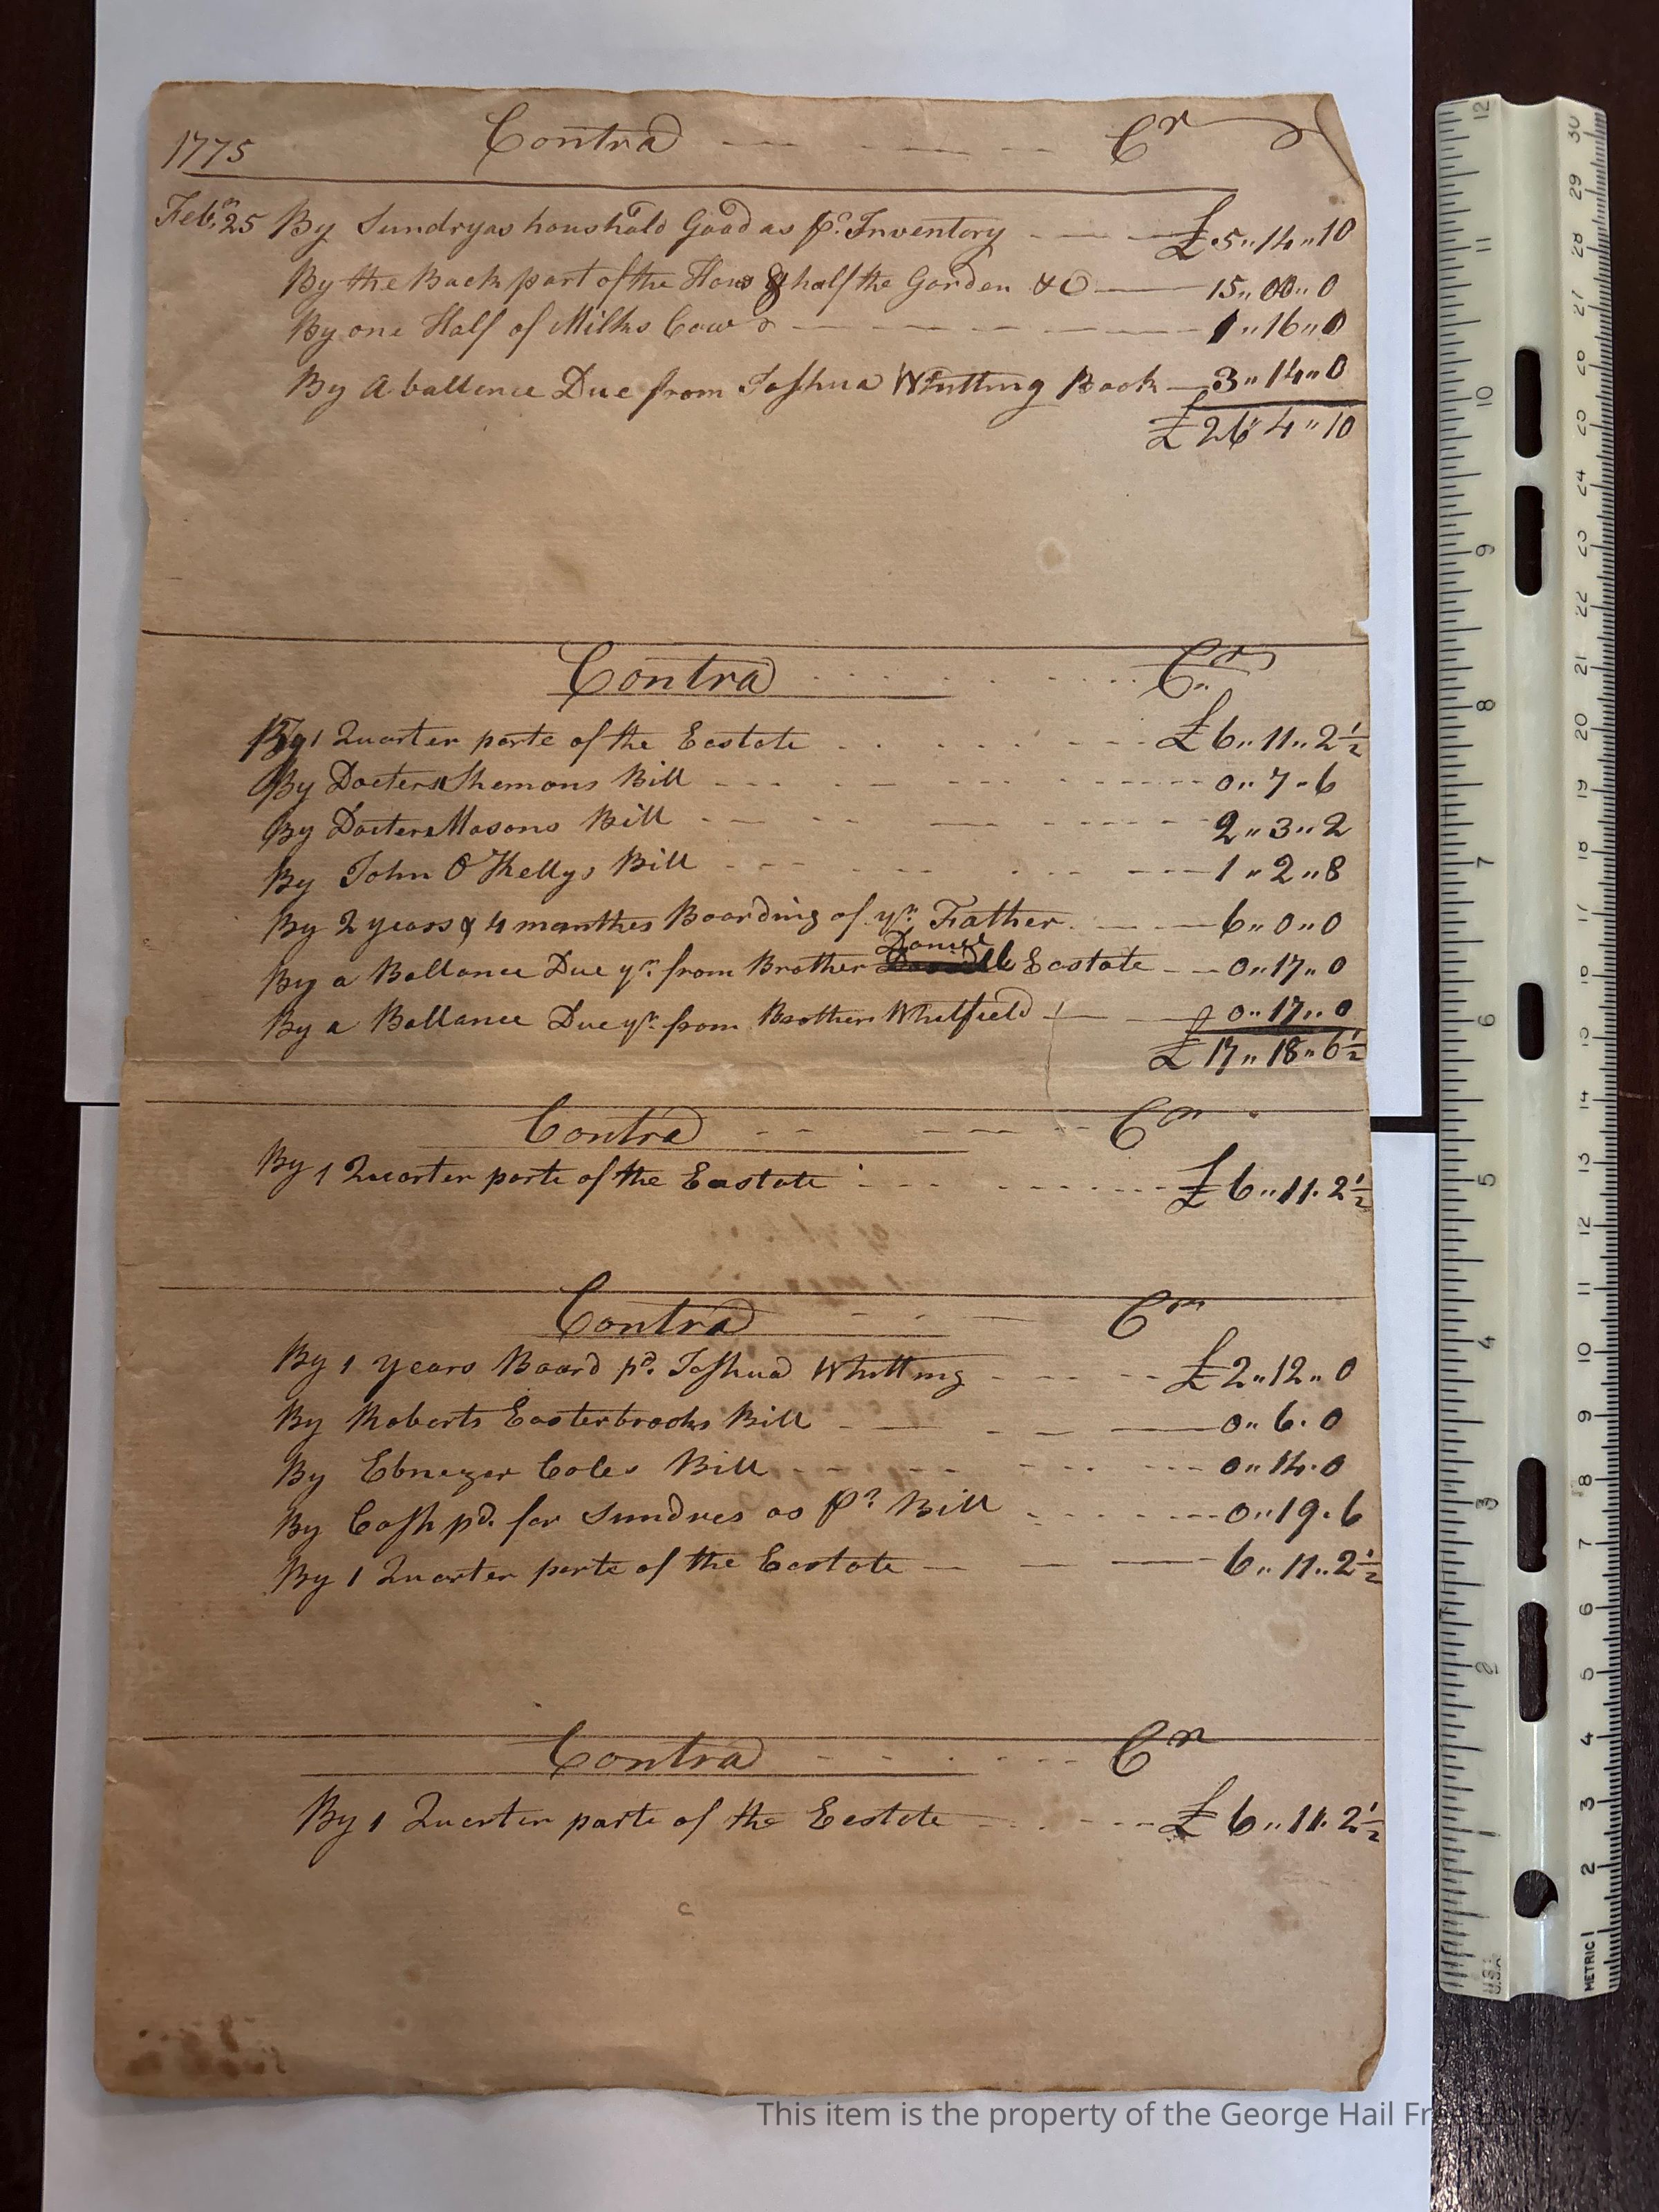 1775 Contra Cr
Febr 25 By Sundryas houshold Good as pr Inventory £5"14"10
By the Back part of the Hous & half the Garden &C 15"00"0
By one Half of Milks Cow 1"16"0
By A ballence Due from Joshua Whitting Book 3"14"0
£26"4"10
Contra Cr
By 1 Quarter parte of the Eastate £6"11"2½
By Docters Bill 0"7"6
By Docters Masons Bill 2"3"2
By John O Kellys Bill 1"2"8
By 2 years & 4 monthes Boarding of yr Father 6"0"0
By a Ballance Due yr from Brother Daniel Eastate 0"17"0
By a Ballance Due yr from Brother Whitfield 0"17"0
£17"18"6½
Contra Cr
By 1 Quarter parte of the Eastate £6"11"2½
Contra Cr
By 1 years Board pd Joshua Whitting £2"12"0
By Roberts Easterbrooks Bill 0"6"0
By Ebnezer Coles Bill 0"14"0
By Cash pd for Sundres as pr Bill 0"19"6
By 1 Quarter parte of the Eastate 6"11"2½
Contra Cr
By 1 Quarter parte of the Eestate £6"11"2½
This item is the property of the George Hail Free Library.
12 11 10 9 8 7 6 5 4 3 2 1
30 29 28 27 26 25 24 23 22 21 20 19 18 17 16 15 14 13 12 11 10 9 8 7 6 5 4 3 2 1
U.S.
METRIC